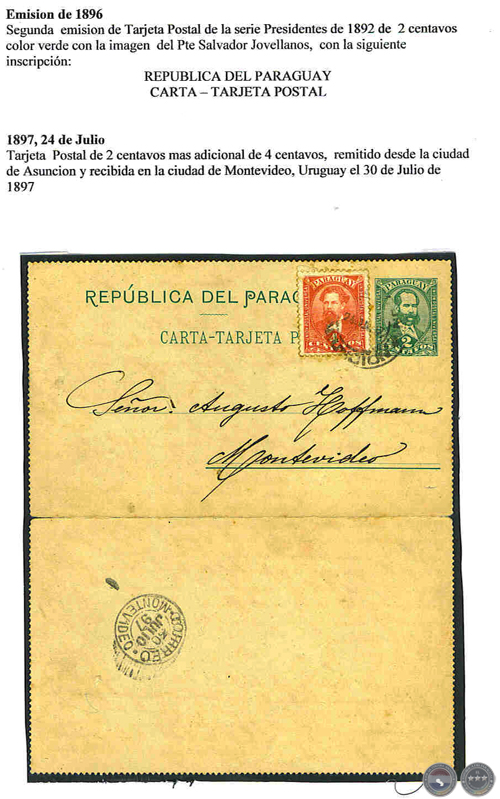 Emision de 1896
Segunda emision de Tarjeta Postal de la serie Presidentes de 1892 de 2 centavos
color verde con la imagen del Pte Salvador Jovellanos, con la siguiente
inscripción:
REPUBLICA DEL PARAGUAY
CARTA – TARJETA POSTAL
1897, 24 de Julio
Tarjeta Postal de 2 centavos mas adicional de 4 centavos, remitido desde la ciudad
de Asuncion y recibida en la ciudad de Montevideo, Uruguay el 30 de Julio de
1897
REPÚBLICA DEL PARAG
CARTA-TARJETA P
PARAGUAY
PARAGUAY
2
Señor: Augusto Hoffmann
Montevideo
CORREO MONTEVIDEO
JULIO
97